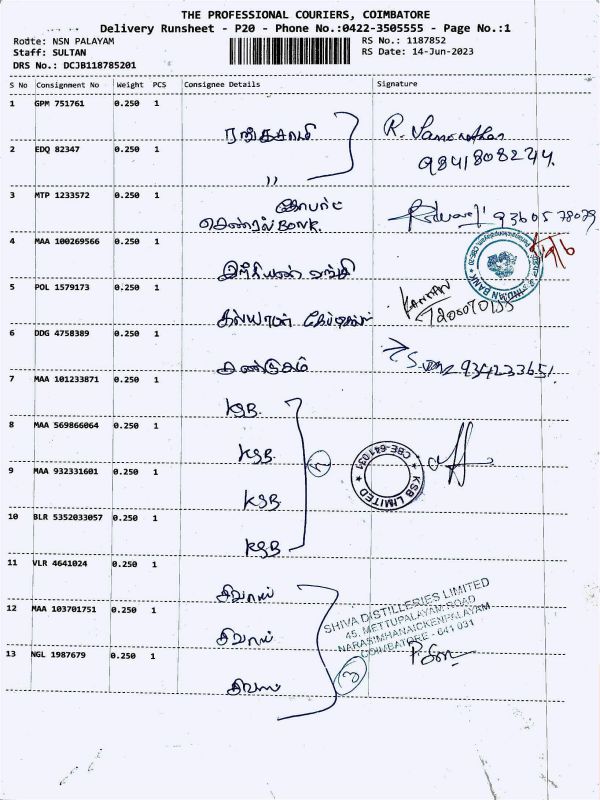 THE PROFESSIONAL COURIERS, COIMBATORE
Delivery Runsheet - P20 - Phone No.:0422-3505555 - Page No.:1
Route: NSN PALAYAM
RS No.: 1187852
Staff: SULTAN
RS Date: 14-Jun-2023
DRS No.: DCJB118785201
S No Consignment No Weight PCS Consignee Details Signature
1 GPM 751761 0.250 1
ரங்கசாமி R.
2 EDQ 82347 0.250 1
9841808274.
,,
3 MTP 1233572 0.250 1
சென்ரல் BANK. 9360578079
4 MAA 100269566 0.250 1
INDIAN BANK
5 POL 1579173 0.250 1
KANNAN
6 DDG 4758389 0.250 1
934233651.
7 MAA 101233871 0.250 1
KSB.
8 MAA 569866064 0.250 1
KSB.
KSB LIMITED CBE-641 031
9 MAA 932331601 0.250 1
KSB
10 BLR 5352033057 0.250 1
KSB
11 VLR 4641024 0.250 1
சிவாஸ்
SHIVA DISTILLERIES LIMITED
45, METTUPALAYAM ROAD
NARASIMHANAICKENPALAYAM
COIMBATORE - 641 031
12 MAA 103701751 0.250 1
சிவாஸ்
13 NGL 1987679 0.250 1
3